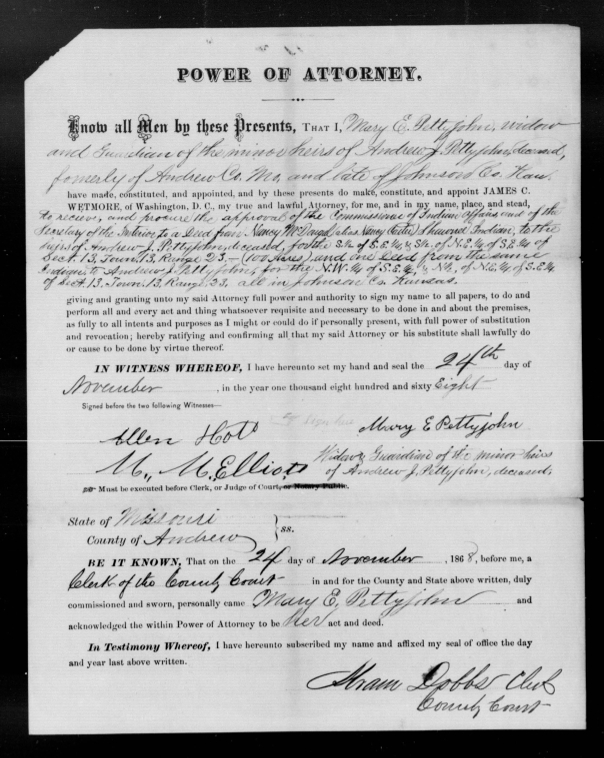 POWER OF ATTORNEY.
Know all Men by these Presents, THAT I, Mary E. Pettyjohn, widow
and Guardian of the minor heirs of Andrew J. Pettyjohn, deceased,
formerly of Andrew Co. Mo, and late of Johnson Co. Kan.
have made, constituted, and appointed, and by these presents do make, constitute, and appoint JAMES C.
WETMORE, of Washington, D. C., my true and lawful Attorney, for me, and in my name, place, and stead,
to receive, and procure the approval of the Commissioner of Indian affairs and of the
Secretary of the Interior to a Deed from Nancy (alias Nancy Shawnee Indian, to the
heirs of Andrew J. Pettyjohn, deceased, for the S.½ of S.E.¼, & S½. of N.E.¼ of S.E.¼ of
Sect. 13, Town. 13, Range 23,—(100 Acres) and one Deed from the same
Indian to Andrew J. Pettyjohn, for the N.W.¼ of S.E.¼, & N½, of N.E.¼ of S.E.¼
of Sect. 13, Town. 13, Range 23, all in Johnson Co. Kansas.
giving and granting unto my said Attorney full power and authority to sign my name to all papers, to do and
perform all and every act and thing whatsoever requisite and necessary to be done in and about the premises,
as fully to all intents and purposes as I might or could do if personally present, with full power of substitution
and revocation; hereby ratifying and confirming all that my said Attorney or his substitute shall lawfully do
or cause to be done by virtue thereof.
IN WITNESS WHEREOF, I have hereunto set my hand and seal the 24th day of
November, in the year one thousand eight hundred and sixty Eight
Signed before the two following Witnesses—
Mary E Pettyjohn
Allen Holt
Widow & Guardian of the minor heirs
M. M. Elliott
of Andrew J. Pettyjohn, deceased,
Must be executed before Clerk, or Judge of Court, or Notary Public.
State of Missouri
County of Andrew } ss.
BE IT KNOWN, That on the 24 day of November, 1868, before me, a
Clerk of the County Court in and for the County and State above written, duly
commissioned and sworn, personally came Mary E. Pettyjohn and
acknowledged the within Power of Attorney to be her act and deed.
In Testimony Whereof, I have hereunto subscribed my name and affixed my seal of office the day
and year last above written.
Dobbs Clerk
County Court